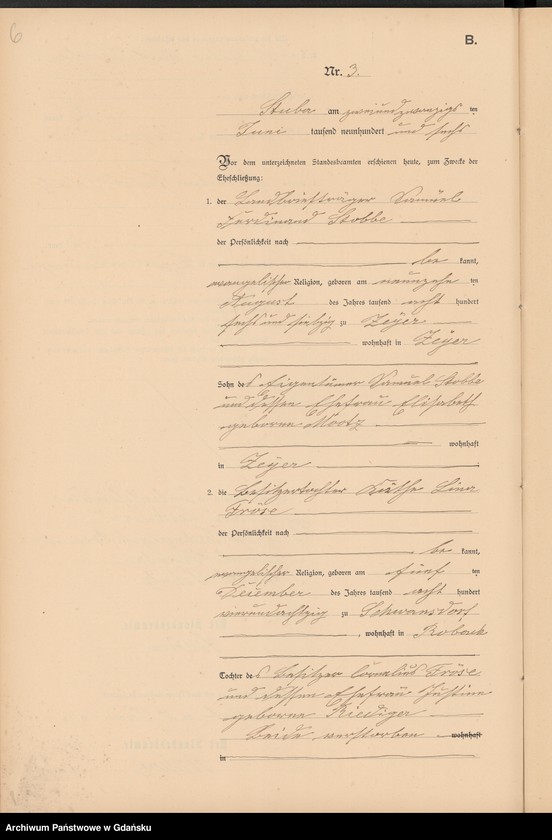 6
B.
Nr. 3.
Stuba am zweiundzwanzigsten
Juni tausend neunhundert und sechs
Vor dem unterzeichneten Standesbeamten erschienen heute, zum Zwecke der
Eheschließung:
1. der Landbriefträger Samuel
Ferdinand Stobbe
der Persönlichkeit nach
be kannt,
evangelischer Religion, geboren am neunzehn ten
August des Jahres tausend acht hundert
sechsundsiebzig zu Zeyer
wohnhaft in Zeyer
Sohn des Eigentümer Samuel Stobbe
und dessen Ehefrau Elisabeth
geborene
wohnhaft
in Zeyer
2. die Besitzertochter Käthe Lina
Fröse
der Persönlichkeit nach
be kannt,
evangelischer Religion, geboren am fünf ten
Dezember des Jahres tausend acht hundert
vierundachtzig zu Schwansdorf
, wohnhaft in Robach
Tochter des Besitzer Cornelius Fröse
und dessen Ehefrau Justine
geborene Riediger
Beide verstorben wohnhaft
in
Archiwum Państwowe w Gdańsku